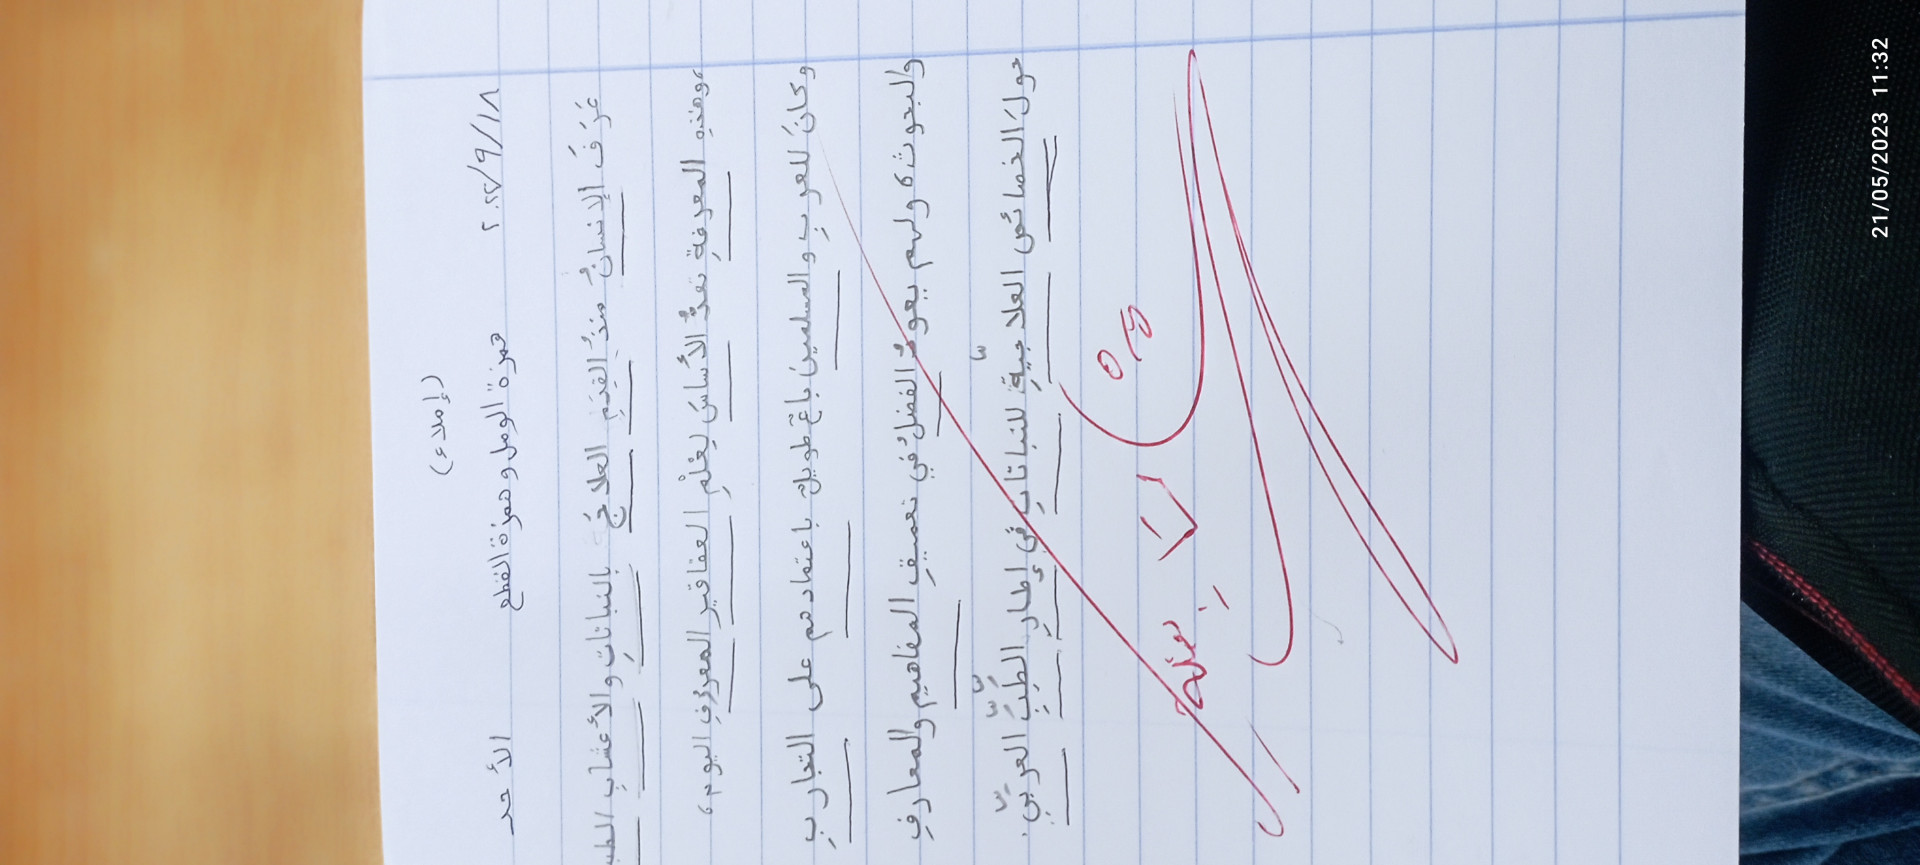 (إملاء)
الأحد همزة الوصل وهمزة القطع ٢٠٢٢/٩/١٨
عَرَفَ الإنسانُ منذُ القِدَمِ العلاجَ بالنباتاتِ والأعشابِ
وهذهِ المعرفةِ تعدُّ الأساسَ لِعْلمِ العقاقيرِ المعروفِ اليوم،
وكانَ للعربِ والمسلمينَ باعٌ طويلٌ باعتمادهم على التجاربِ
والبحوث، ولهم يعودُ الفضلُ في تعميقِ المفاهيمِ والمعارفِ
حولَ الخصائصِ العلاجيّةِ للنباتاتِ في إطارِ الطبِّ العربيّ.
٥/٥
21/05/2023 11:32